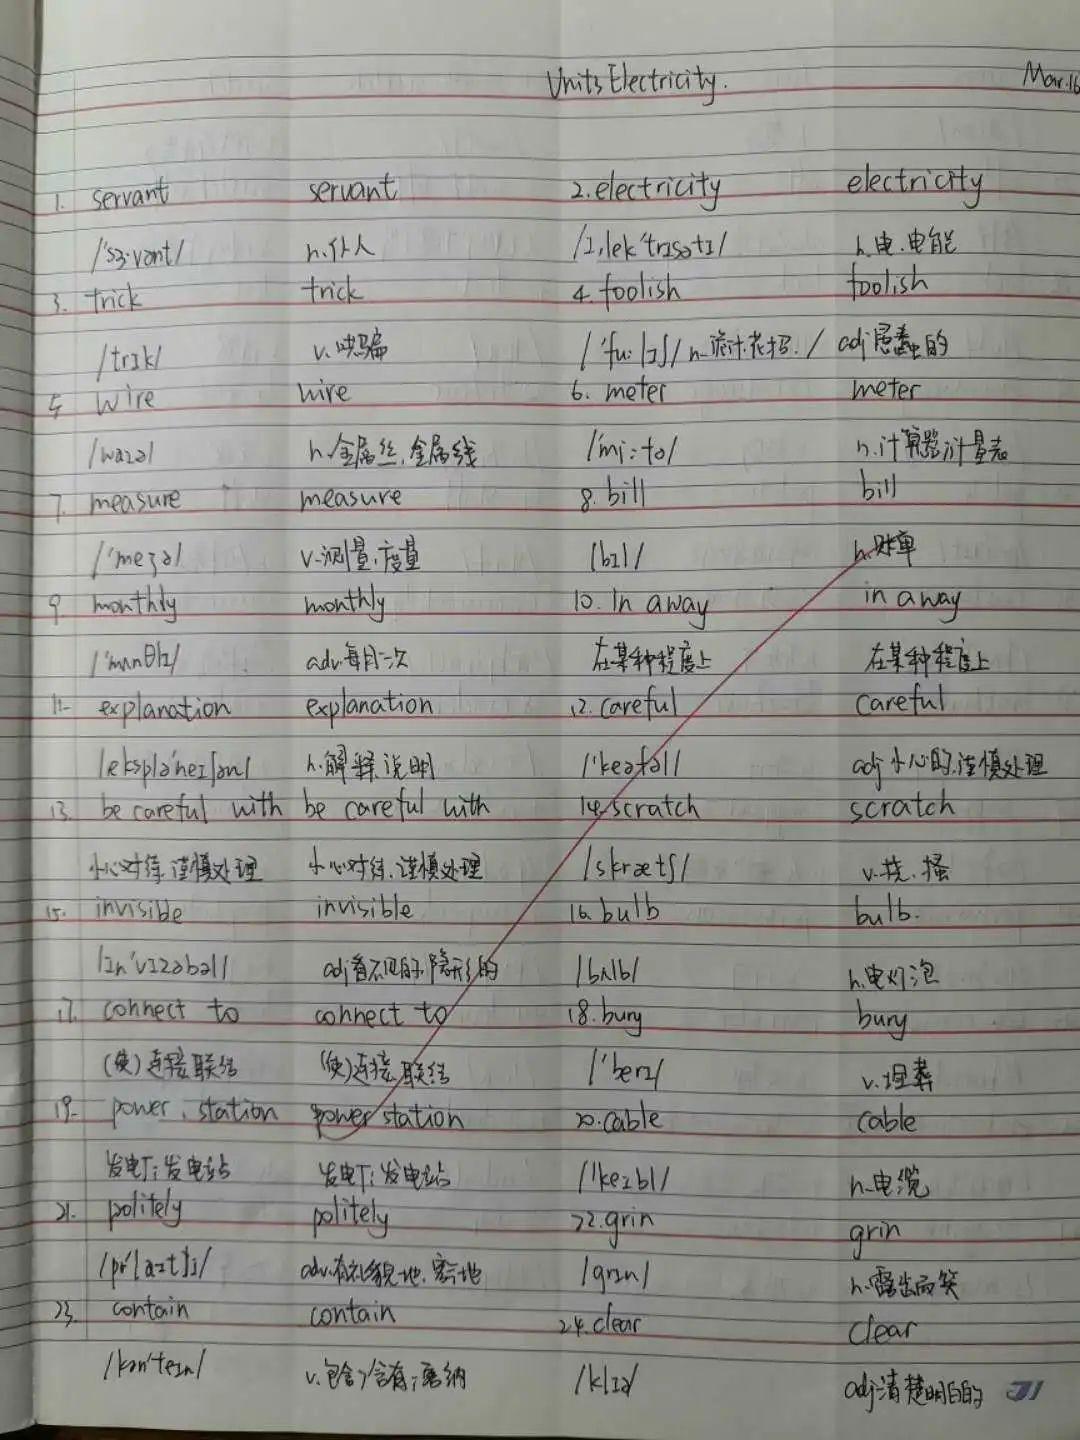 Unit5 Electricity. Mar.16
1. servant servant 2. electricity electricity
/'sɜ:vənt/ n.仆人 /ɪ,lek'trɪsətɪ/ n.电.电能
3. trick trick 4. foolish foolish
/trɪk/ v.哄骗 /'fu:lɪʃ/ n.诡计.花招./ adj愚蠢的
5 wire wire 6. meter meter
/waɪə/ n.金属丝.金属线 /'mi:tə/ n.计算器;计量表
7. measure measure 8. bill bill
/'meʒə/ v.测量.度量 /bɪl/ n.账单
9 monthly monthly 10. In away in away
/'mʌnθlɪ/ adv.每月一次 在某种程度上 在某种程度上
11. explanation explanation 12. careful careful
/eksplə'neɪʃən/ n.解释.说明 /'keəfəl/ adj小心的.谨慎处理
13. be careful with be careful with 14. scratch scratch
小心对待.谨慎处理 小心对待.谨慎处理 /skrætʃ/ v.挠.搔
15. invisible invisible 16. bulb bulb.
/ɪn'vɪzəbəl/ adj看不见的.隐形的 /bʌlb/ n.电灯泡
17. connect to connect to 18. bury bury
(使)连接.联结 (使)连接.联结 /'berɪ/ v.埋葬
19. power station power station 20. cable cable
发电厂;发电站 发电厂;发电站 /'keɪbl/ n.电缆
21. politely politely 22. grin grin
adv.有礼貌地.客气地 /grɪn/ n.露出而笑
23. contain contain 24. clear clear
/kən'teɪn/ v.包含;含有;容纳 /klɪə/ adj清楚明白的